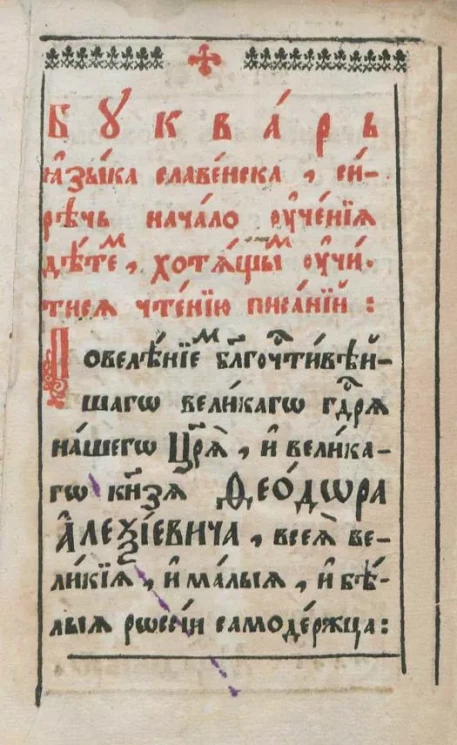 Бꙋква́рь
ꙗ҆зы́ка славе́нска, си-
рѣ́чь нача́ло ᲂу҆че́нїѧ
дѣ́теⷨ, хотѧ́щыⷨ ᲂу҆чи́-
тисѧ чте́нїю писа́нїй:
Повелѣ́нїеⷨ бл҃гоче⁠сти́вѣй-
шагѡ вели́кагѡ гдⷭ҇рѧ
на́шегѡ Цр҃ѧ̀, и҆ вели́ка-
гѡ кн҃зѧ Ѳео́дѡра
А҆леѯі́евича, всеѧ̀ ве-
ли́кїѧ, и҆ ма́лыѧ, и҆ бѣ́-
лыѧ рѡссі́и самоде́ржца: